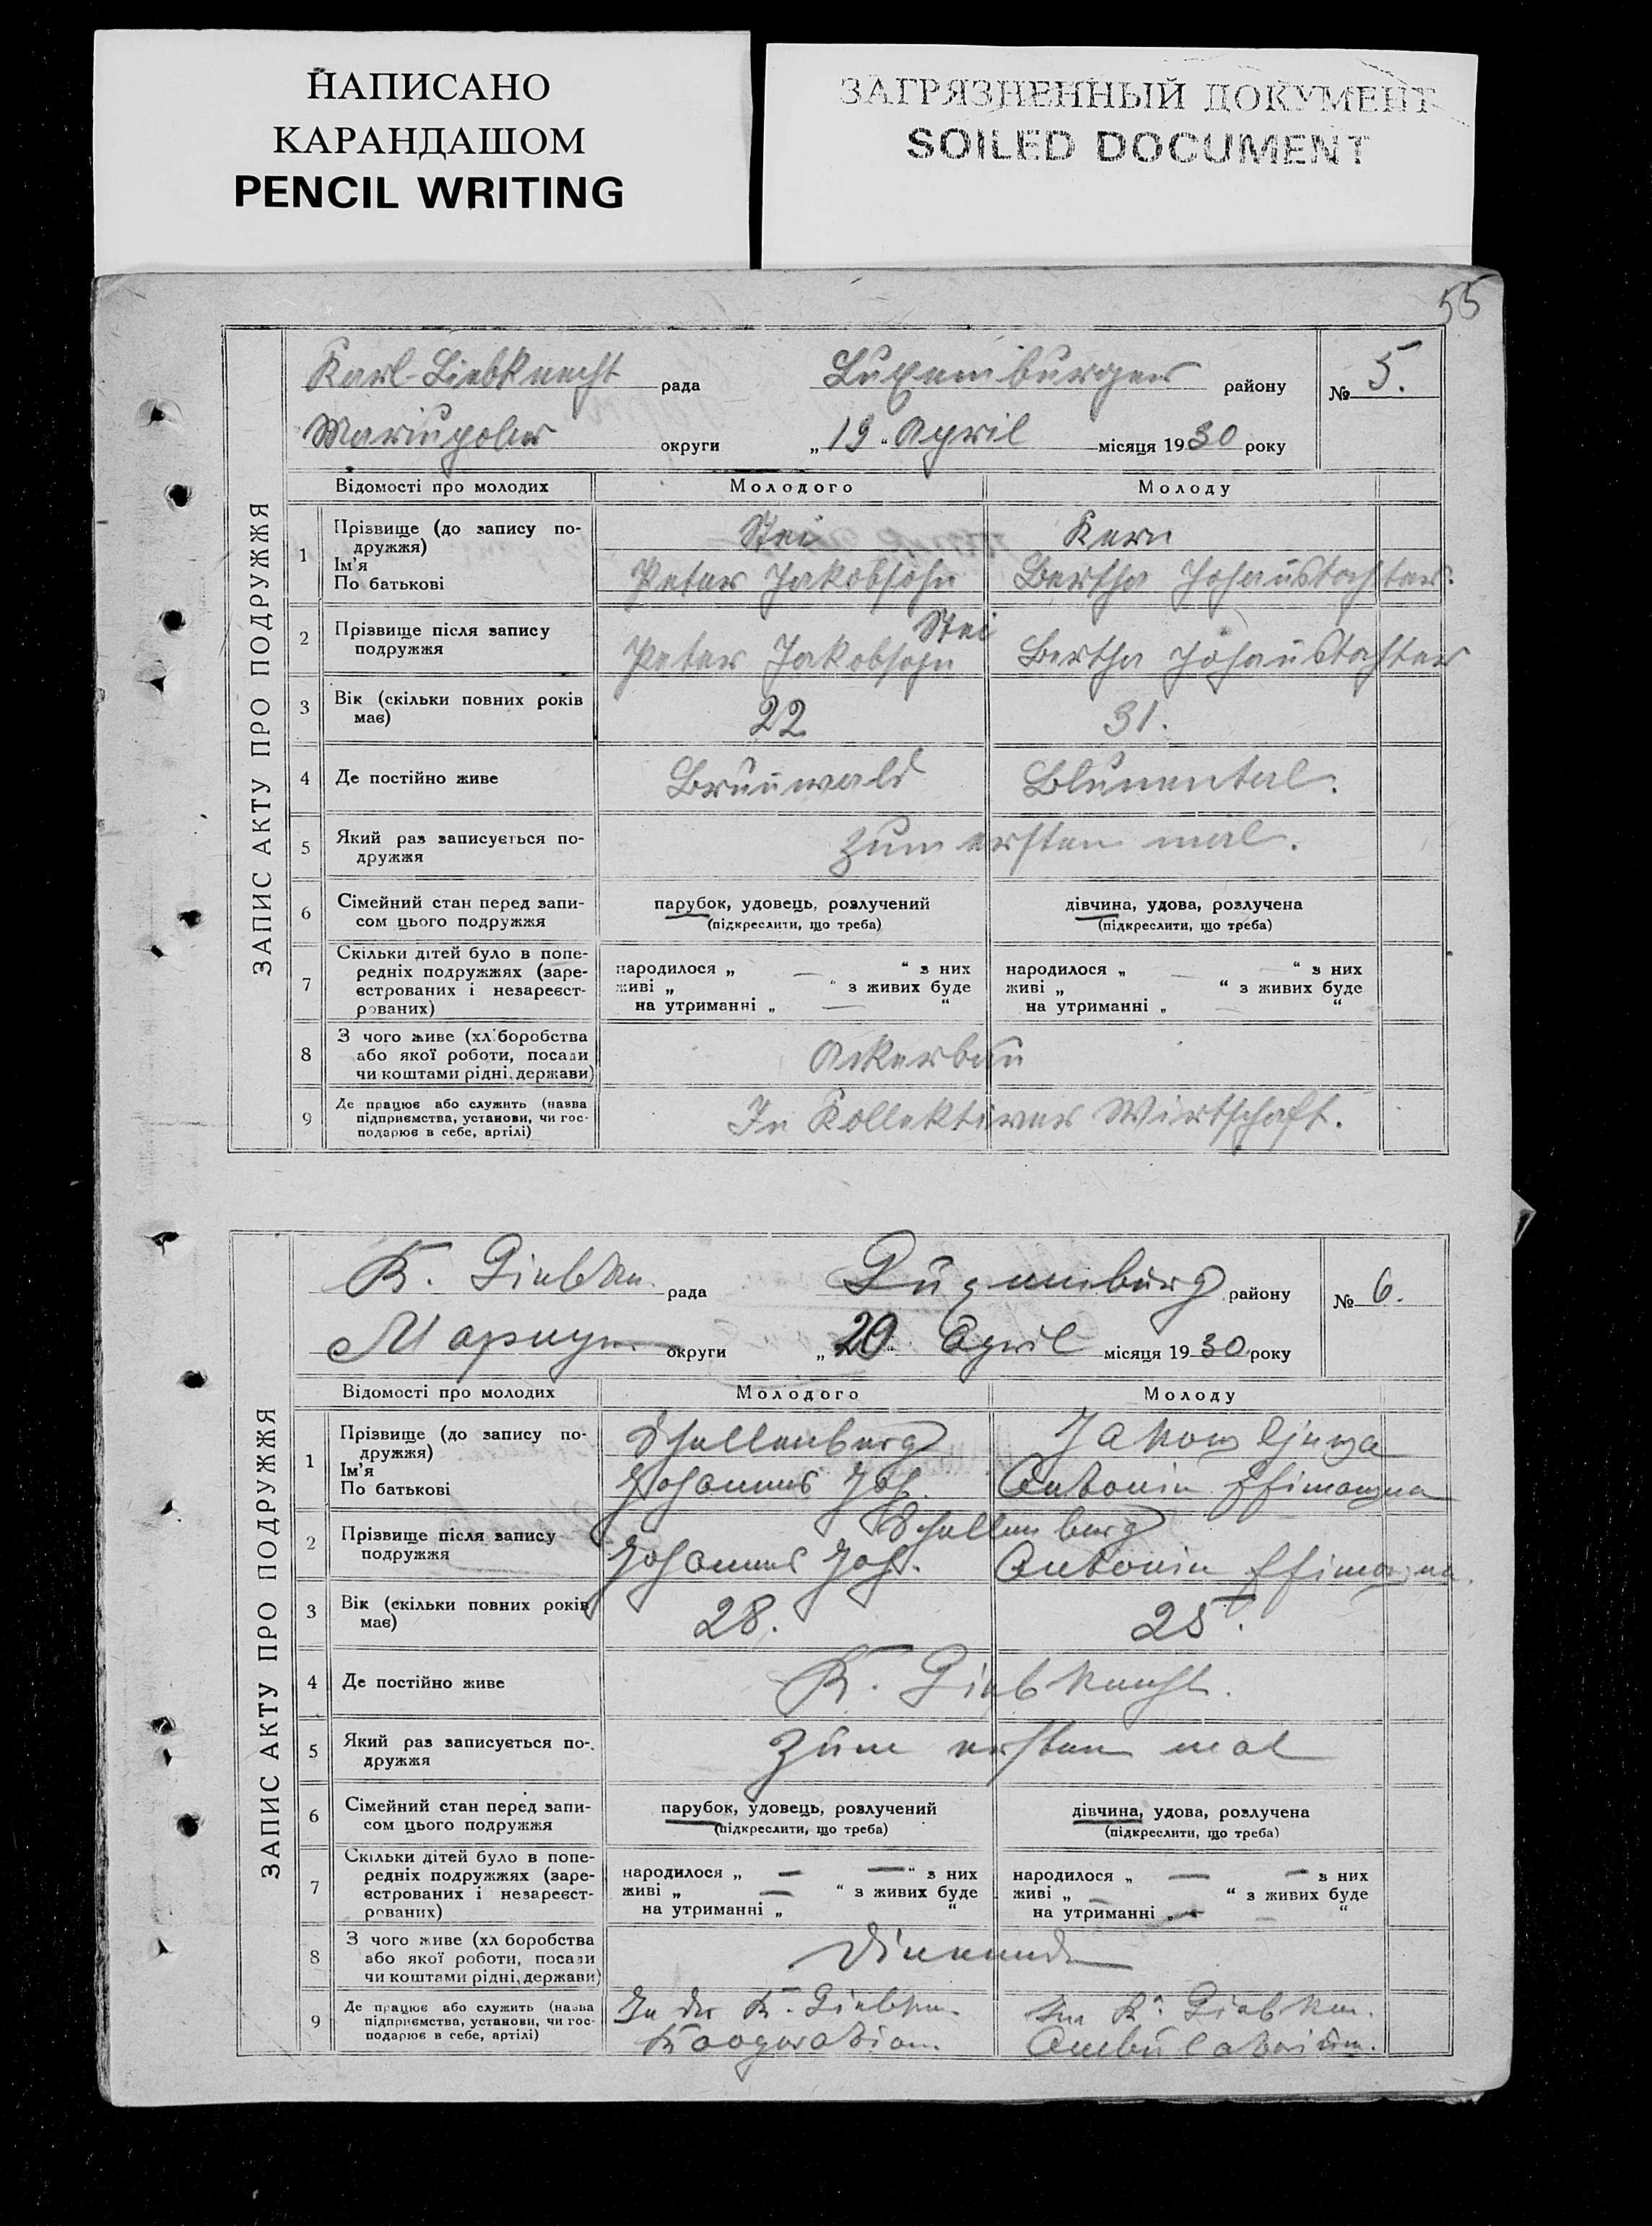 НАПИСАНО
КАРАНДАШОМ
PENCIL WRITING
ЗАГРЯЗНЕННЫЙ ДОКУМЕНТ
SOILED DOCUMENT
55
ЗАПИС АКТУ ПРО ПОДРУЖЖЯ
Karl-Liebknecht рада Luxemburger району № 5.
Mariupoler округи „19“ April місяця 1930 року
Відомості про молодих Молодого Молоду
1 Прізвище (до запису по-
дружжя) Stei Kern
Ім'я
По батькові Peter Jakobsohn Bertha Johanstochter.
2 Прізвище після запису
подружжя Stei
Peter Jakobsohn Bertha Johanstochter
3 Вік (скільки повних років
має) 22 31.
4 Де постійно живе Grünwald Blumental.
5 Який раз записується по-
дружжя zum ersten mal.
6 Сімейний стан перед запи-
сом цього подружжя парубок, удовець, розлучений дівчина, удова, розлучена
(підкреслити, що треба) (підкреслити, що треба)
7 Скільки дітей було в попе-
редніх подружжях (заре-
єстрованих і незареєст-
рованих)
народилося „ — “ з них народилося „ — “ з них
живі „ “ з живих буде живі „ “ з живих буде
на утриманні „ — “ на утриманні „ — “
8 З чого живе (хлiборобства
або якої роботи, посади
чи коштами рідні, держави) Ackerbau
9 Де працює або служить (назва
підприємства, установи, чи гос-
подарює в себе, артілі) In Kollektiver Wirtschaft.
ЗАПИС АКТУ ПРО ПОДРУЖЖЯ
K. Liebkn. рада Luxemburg району № 6.
Мариуп. округи „20“ April місяця 1930 року
Відомості про молодих Молодого Молоду
1 Прізвище (до запису по-
дружжя) Schellenberg
Ім'я
По батькові Johannes Joh. Antonin Efimowna
2 Прізвище після запису
подружжя Schellenberg
Johannes Joh. Antonin Efimowna.
3 Вік (скільки повних років
має) 28. 25.
4 Де постійно живе K. Liebknecht.
5 Який раз записується по-
дружжя zum ersten mal
6 Сімейний стан перед запи-
сом цього подружжя парубок, удовець, розлучений дівчина, удова, розлучена
(підкреслити, що треба) (підкреслити, що треба)
7 Скільки дітей було в попе-
редніх подружжях (заре-
єстрованих і незареєст-
рованих)
народилося „ — — “ з них народилося „ — — з них
живі „ — “ з живих буде живі „ — “ з живих буде
на утриманні „ “ на утриманні „ — “
8 З чого живе (хл боробства
або якої роботи, посади
чи коштами рідні, держави)
9 Де працює або служить (назва
підприємства, установи, чи гос-
подарює в себе, артілі)
In der K. Liebkn. Im K. Liebkn.
Kooperation. Ambulatorium.